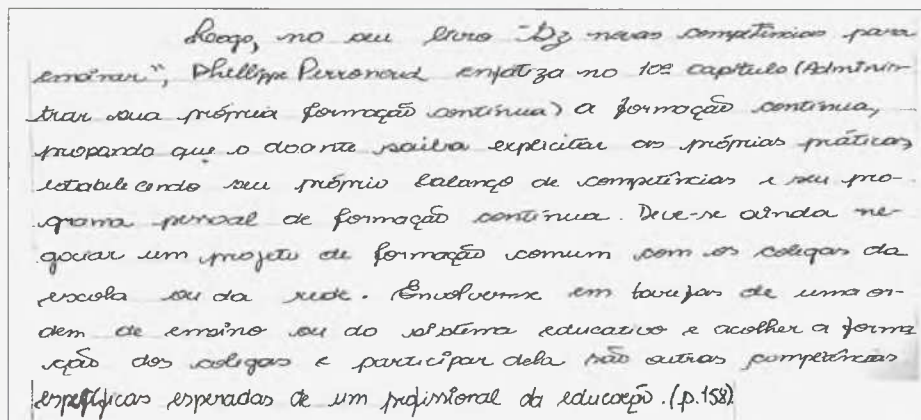 Logo, no seu livro "Dz novas competências para
ensinar", Phellippe Perronoud enfatiza no 10º capítulo (Adminis-
trar sua própria formação contínua) a formação contínua,
propando que o doante saiba explicitar as próprias práticas
estabelecendo seu próprio balanço de competências e seu pro-
grama pessoal de formação contínua. Deve-se ainda ne-
gociar um projeto de formação comum com os colegas da
escola ou da rede. Envolver-se em tarefas de uma or-
dem de ensino ou do sistema educativo e acolher a forma
ção dos colegas e participar dela são outras competências
específicas esperadas de um profissional da educação. (p.158)